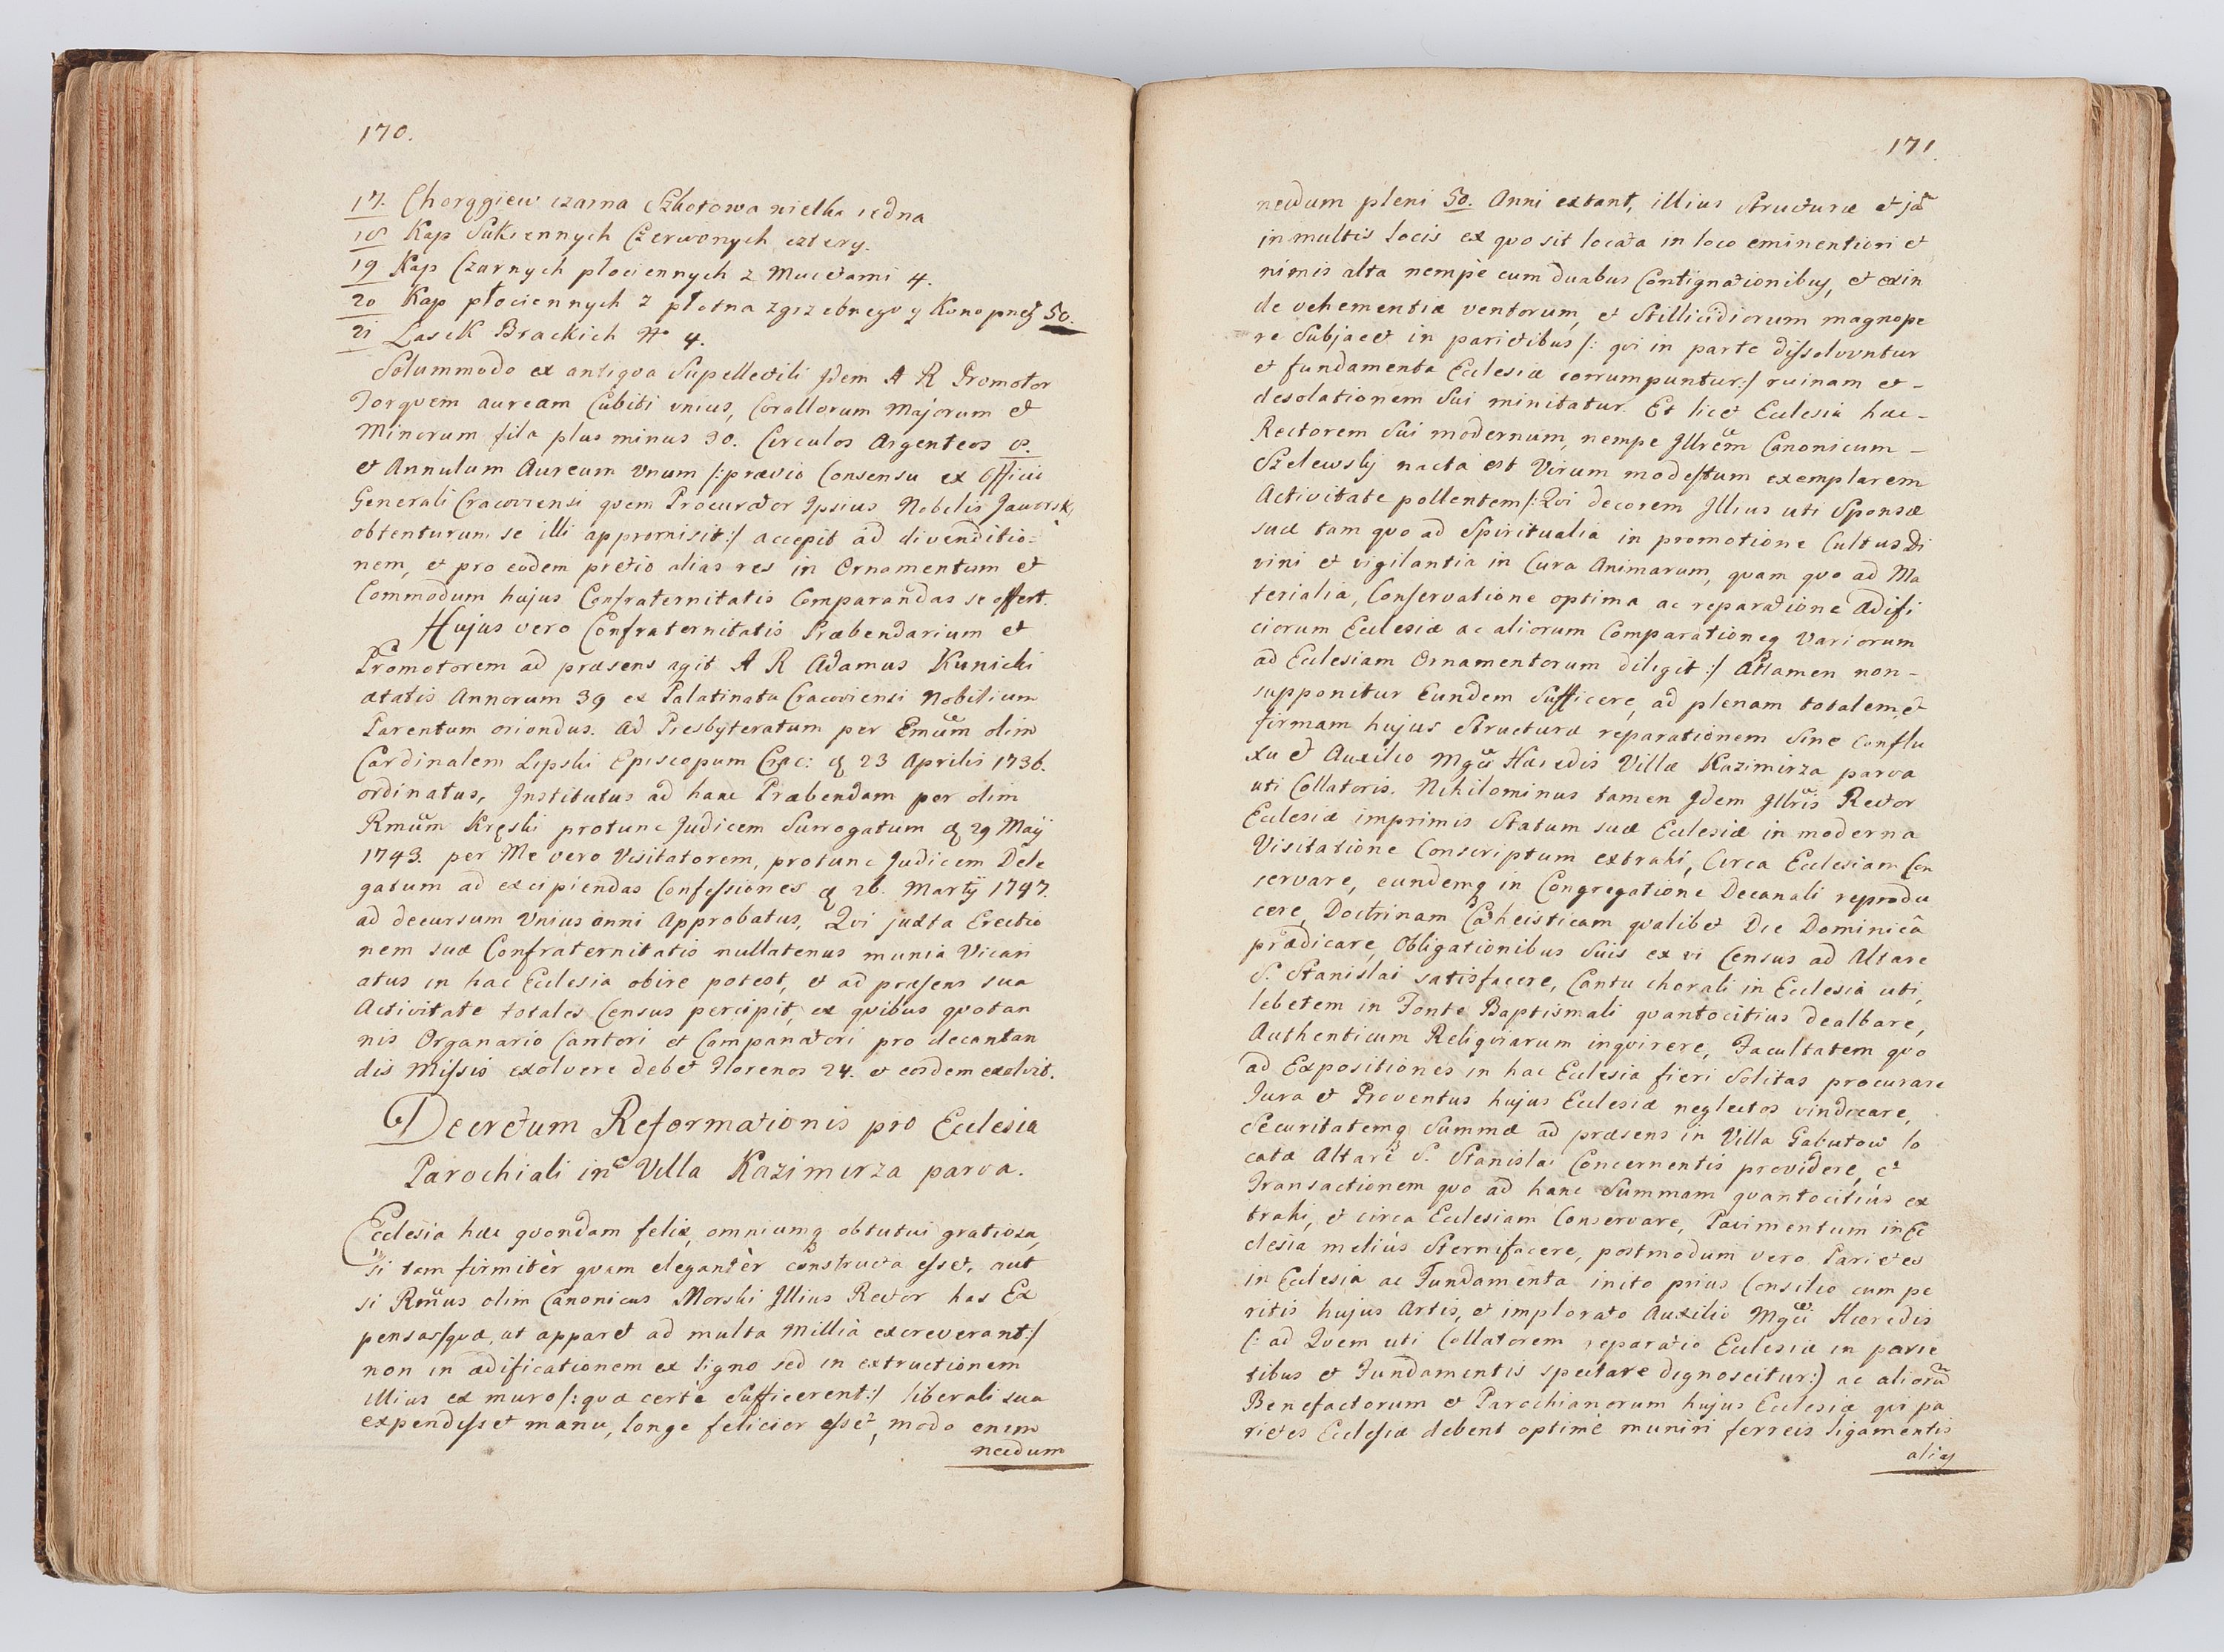 170.
17. Chorągiew czarna Szkotowa wielka iedna
18 Kap Sukiennych Czerwonych cztery.
19 Kap Czarnych płociennych z Mucetami 4.
20 Kap płociennych z płotna zgrzebnego y Konopneg 50.
21 Lasek Brackich No 4.
Solummodo ex antiqva Supellectili Jdem A R Promotor
Torqvem auream Cubiti unius, Corallorum Majorum et
Minorum fila plus minus 30. Circulos Argenteos 8.
et Annulum Aureum Vnum /:prævio Consensu ex Officio
Generali Cracoviensi qvem Procurator Ipsius Nobilis Jaworski
obtenturum se illi appromisit:/ accepit ad divenditio=
nem, et pro eodem pretio alias res in Ornamentum et
Commodum hujus Confraternitatis Comparandas se offert.
Hujus vero Confraternitatis Præbendarium et
Promotorem ad præsens agit A R Adamus Kunicki
ætatis Annorum 39 ex Palatinatu Cracoviensi Nobilium
Parentum oriundus. Ad Presbyteratum per Emūm olim
Cardinalem Lipski Episcopum Crac: d 23 Aprilis 1736.
ordinatus, Institutus ad hanc Præbendam per olim
Rmūm Kręski protunc Judicem Surrogatum d 29 Maij
1743. per Me vero Visitatorem, protunc Judicem Dele
gatum ad excipiendas Confessiones d 26. Martij 1747.
ad decursum Vnius anni Approbatus, Qvi juxta Erectio
nem suæ Confraternitatis nullatenus munia Vicari
atus in hac Ecclesia obire potest, et ad præsens sua
Activitate totales Census percipit, ex qvibus qvotan
nis Organario Cantori et Campanatori pro decantan
dis Missis exolvere debet Florenos 24. et eosdem exolvit.
Decretum Reformationis pro Ecclesia
Parochiali in Villa Kazimirza parva.
Ecclesia hæc qvondam felix, omniumq obtutui gratiosa,
si tam firmitèr qvam elegantèr constructa esset, aut
si Rmūs olim Canonicus Morski Jllius Rector has Ex
pensas /qvæ, ut apparet ad multa Millia excreverant:/
non in ædificationem ex ligno sed in extructionem
illius ex muro /:qvæ certè Sufficerent:/ liberali sua
expendisset manu, longe felicior esset, modo enim
necdum
171.
necdum pleni 50. Anni extant, illius Structuræ et jā
in multis locis ex qvo sit locata in loco eminentiori et
nimis alta nempè cum duabus Contignationibus, et exin
de vehementiæ ventorum, et Stillicidiorum magnope
re Subjacet in parietibus /: qvi in parte dissolvuntur
et fundamenta Ecclesiæ corrumpuntur:/ ruinam et -
desolationem Sui minitatur. Et licet Ecclesia hæc -
Rectorem Sui modernum, nempe Jllrēm Canonicum -
Szelewskj nacta est Virum modestum exemplarem
Activitate pollentem /:Qvi decorem Jllius uti Sponsæ
suæ tam qvo ad Spiritualia in promotione Cultus Di
vini et vigilantia in Cura Animarum, qvam qvo ad Ma
terialia, Conservatione optima ac reparatione Ædifi
ciorum Ecclesiæ ac aliorum Comparationeq Variorum
ad Ecclesiam Ornamentorum diligit:/ Attamen non -
supponitur Eundem Sufficere, ad plenam totalem, et
firmam hujus Structuræ reparationem Sine Conflu
xu et Auxilio Mgci Hæredis Villæ Kazimirza parva
uti Collatoris. Nihilominus tamen Jdem Jllris Rector
Ecclesiæ imprimis Statum suæ Ecclesiæ in moderna
Visitatione Conscriptum extrahi, Circa Ecclesiam Con
servare, eundemq in Congregatione Decanali reprodu
cere, Doctrinam Catheisticam qvalibet Die Dominicâ
prædicare, Obligationibus Suis ex vi Census ad Altare
S. Stanislai satisfacere, Cantu chorali in Ecclesia uti,
lebetem in Fonte Baptismali qvantocitius dealbare,
Authenticum Reliqviarum inqvirere, Facultatem qvo
ad Expositiones in hac Ecclesia fieri Solitas procurare
Jura et Proventus hujus Ecclesiæ neglectos vindicare,
Securitatemq Summæ ad præsens in Villa Gabutow lo
catæ Altare S. Stanislai Concernentis providere, et
Transactionem qvo ad hanc Summam qvantocitius ex
trahi, et circa Ecclesiam Conservare, Pavimentum in Ec
clesia meliùs Sternifacere, postmodum vero Parietes
in Ecclesia ac Fundamenta inito prius Consilio cum pe
ritis hujus Artis, et implorato Auxilio Mgci Hæredis
(: ad Qvem uti Collatorem reparatio Ecclesiæ in parie
tibus et Fundamentis spectare dignoscitur:) ac aliorū
Benefactorum et Parochianorum hujus Ecclesiæ qvi pa
rietes Ecclesiæ debent optimè muniri ferreis ligamentis
aliq